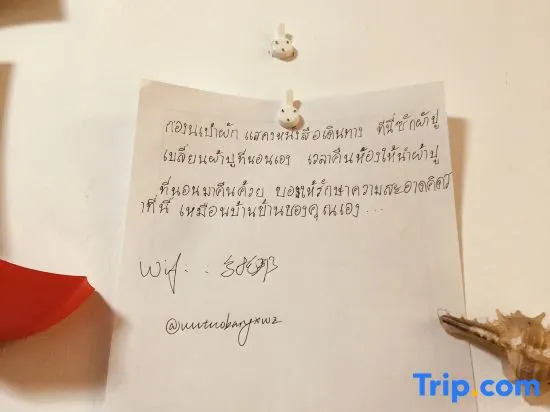 ก่อนเข้าพัก แสดงหนังสือเดินทาง ที่นี่ซักผ้าปู
เปลี่ยนผ้าปูที่นอนเอง เวลาคืนห้องให้นำผ้าปู
ที่นอนมาคืนด้วย ขอให้รักษาความสะอาดคิดว่
าที่นี่ เหมือนบ้านของคุณเอง...
Wifi:
Trip.com